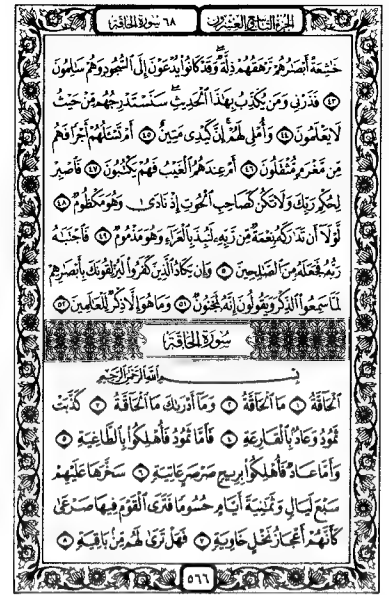 الجزء التاسع والعشرون
٦٨ سورة الحاقة
خَٰشِعَةً أَبْصَٰرُهُمْ تَرْهَقُهُمْ ذِلَّةٌ ۖ وَقَدْ كَانُوا۟ يُدْعَوْنَ إِلَى ٱلسُّجُودِ وَهُمْ سَٰلِمُونَ
٤٣ فَذَرْنِى وَمَن يُكَذِّبُ بِهَٰذَا ٱلْحَدِيثِ ۖ سَنَسْتَدْرِجُهُم مِّنْ حَيْثُ
لَا يَعْلَمُونَ ٤٤ وَأُمْلِى لَهُمْ ۚ إِنَّ كَيْدِى مَتِينٌ ٤٥ أَمْ تَسْـَٔلُهُمْ أَجْرًا فَهُم
مِّن مَّغْرَمٍ مُّثْقَلُونَ ٤٦ أَمْ عِندَهُمُ ٱلْغَيْبُ فَهُمْ يَكْتُبُونَ ٤٧ فَٱصْبِرْ
لِحُكْمِ رَبِّكَ وَلَا تَكُن كَصَاحِبِ ٱلْحُوتِ إِذْ نَادَىٰ وَهُوَ مَكْظُومٌ ٤٨
لَّوْلَآ أَن تَدَٰرَكَهُۥ نِعْمَةٌ مِّن رَّبِّهِۦ لَنُبِذَ بِٱلْعَرَآءِ وَهُوَ مَذْمُومٌ ٤٩ فَٱجْتَبَٰهُ
رَبُّهُۥ فَجَعَلَهُۥ مِنَ ٱلصَّٰلِحِينَ ٥٠ وَإِن يَكَادُ ٱلَّذِينَ كَفَرُوا۟ لَيُزْلِقُونَكَ بِأَبْصَٰرِهِمْ
لَمَّا سَمِعُوا۟ ٱلذِّكْرَ وَيَقُولُونَ إِنَّهُۥ لَمَجْنُونٌ ٥١ وَمَا هُوَ إِلَّا ذِكْرٌ لِّلْعَٰلَمِينَ ٥٢
سُورَةُ الحَاقَّةِ
بِسْمِ ٱللَّهِ ٱلرَّحْمَٰنِ ٱلرَّحِيمِ
ٱلْحَآقَّةُ ١ مَا ٱلْحَآقَّةُ ٢ وَمَآ أَدْرَىٰكَ مَا ٱلْحَآقَّةُ ٣ كَذَّبَتْ
ثَمُودُ وَعَادٌۢ بِٱلْقَارِعَةِ ٤ فَأَمَّا ثَمُودُ فَأُهْلِكُوا۟ بِٱلطَّاغِيَةِ ٥
وَأَمَّا عَادٌ فَأُهْلِكُوا۟ بِرِيحٍ صَرْصَرٍ عَاتِيَةٍ ٦ سَخَّرَهَا عَلَيْهِمْ
سَبْعَ لَيَالٍ وَثَمَٰنِيَةَ أَيَّامٍ حُسُومًا فَتَرَى ٱلْقَوْمَ فِيهَا صَرْعَىٰ
كَأَنَّهُمْ أَعْجَازُ نَخْلٍ خَاوِيَةٍ ٧ فَهَلْ تَرَىٰ لَهُم مِّنۢ بَاقِيَةٍ ٨
٥٦٦